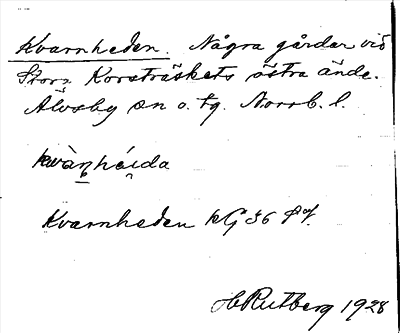 Kvarnheden. Några gårdar vid
Stora Korsträskets östra ände.
Älvsby sn o. tg. Norrb. l.
kwàṇhéida
Kvarnheden kG 36
H Rutberg 1928